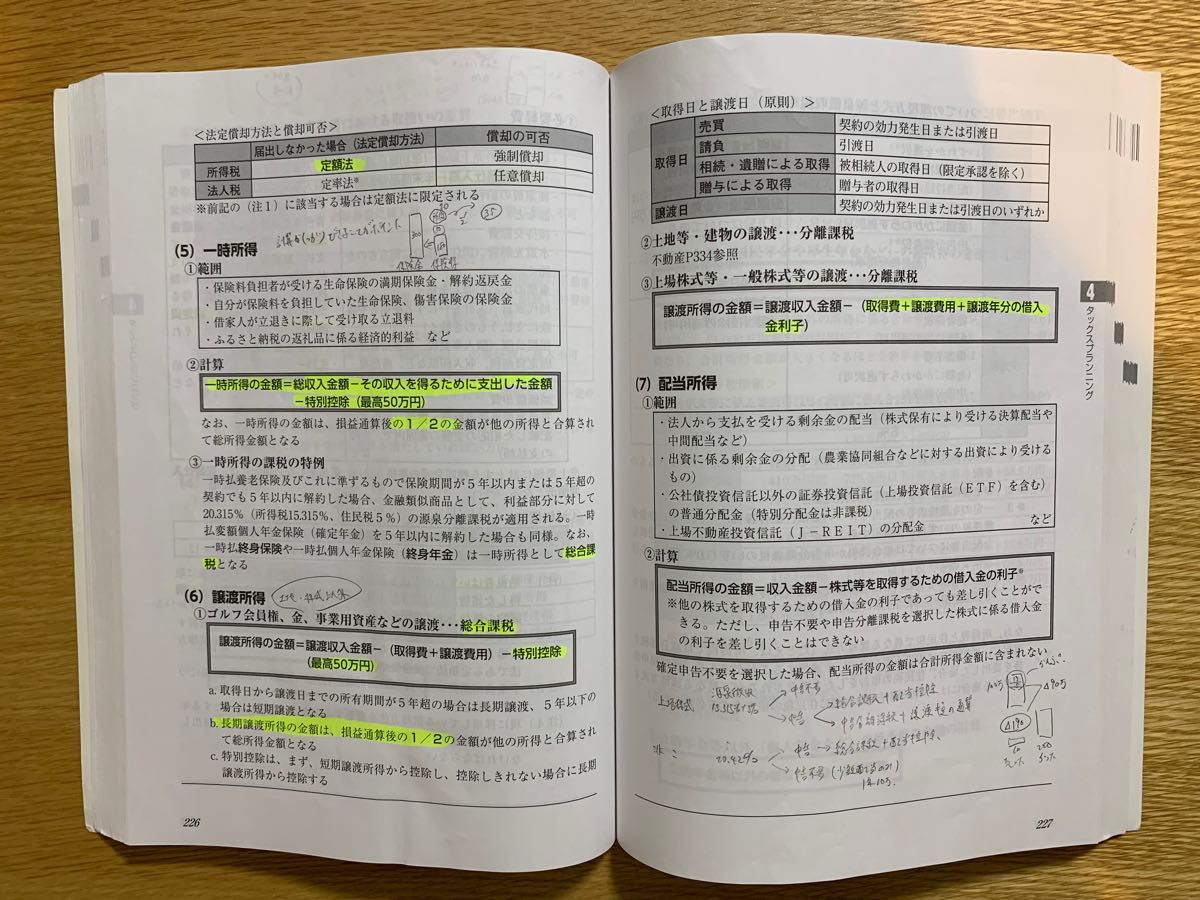 <法定償却方法と償却可否>
届出しなかった場合（法定償却方法） 償却の可否
所得税 定額法 強制償却
法人税 定率法※ 任意償却
※前記の（注１）に該当する場合は定額法に限定される
(5) 一時所得
①範囲
・保険料負担者が受ける生命保険の満期保険金・解約返戻金
・自分が保険料を負担していた生命保険、傷害保険の保険金
・借家人が立退きに際して受け取る立退料
・ふるさと納税の返礼品に係る経済的利益 など
②計算
一時所得の金額＝総収入金額－その収入を得るために支出した金額
－特別控除（最高50万円）
なお、一時所得の金額は、損益通算後の１／２の金額が他の所得と合算され
て総所得金額となる
③一時所得の課税の特例
一時払養老保険及びこれに準ずるもので保険期間が５年以内または５年超の
契約でも５年以内に解約した場合、金融類似商品として、利益部分に対して
20.315%（所得税15.315%、住民税５%）の源泉分離課税が適用される。一時
払変額個人年金保険（確定年金）を５年以内に解約した場合も同様。なお、
一時払終身保険や一時払個人年金保険（終身年金）は一時所得として総合課
税となる
(6) 譲渡所得
①ゴルフ会員権、金、事業用資産などの譲渡･･･総合課税
譲渡所得の金額＝譲渡収入金額－（取得費＋譲渡費用）－特別控除
（最高50万円）
a. 取得日から譲渡日までの所有期間が５年超の場合は長期譲渡、５年以下の
場合は短期譲渡となる
b. 長期譲渡所得の金額は、損益通算後の１／２の金額が他の所得と合算され
て総所得金額となる
c. 特別控除は、まず、短期譲渡所得から控除し、控除しきれない場合に長期
譲渡所得から控除する
226
<取得日と譲渡日（原則）>
取得日 売買 契約の効力発生日または引渡日
請負 引渡日
相続・遺贈による取得 被相続人の取得日（限定承認を除く）
贈与による取得 贈与者の取得日
譲渡日 契約の効力発生日または引渡日のいずれか
②土地等・建物の譲渡･･･分離課税
不動産P334参照
③上場株式等・一般株式等の譲渡･･･分離課税
譲渡所得の金額＝譲渡収入金額－（取得費＋譲渡費用＋譲渡年分の借入
金利子）
(7) 配当所得
①範囲
・法人から支払を受ける剰余金の配当（株式保有により受ける決算配当や
中間配当など）
・出資に係る剰余金の分配（農業協同組合などに対する出資により受ける
もの）
・公社債投資信託以外の証券投資信託（上場投資信託（ＥＴＦ）を含む）
の普通分配金（特別分配金は非課税）
・上場不動産投資信託（Ｊ－ＲＥＩＴ）の分配金 など
②計算
配当所得の金額＝収入金額－株式等を取得するための借入金の利子※
※他の株式を取得するための借入金の利子であっても差し引くことがで
きる。ただし、申告不要や申告分離課税を選択した株式に係る借入金
の利子を差し引くことはできない
確定申告不要を選択した場合、配当所得の金額は合計所得金額に含まれない
上場株式
20.42%
227
4
タックスプランニング